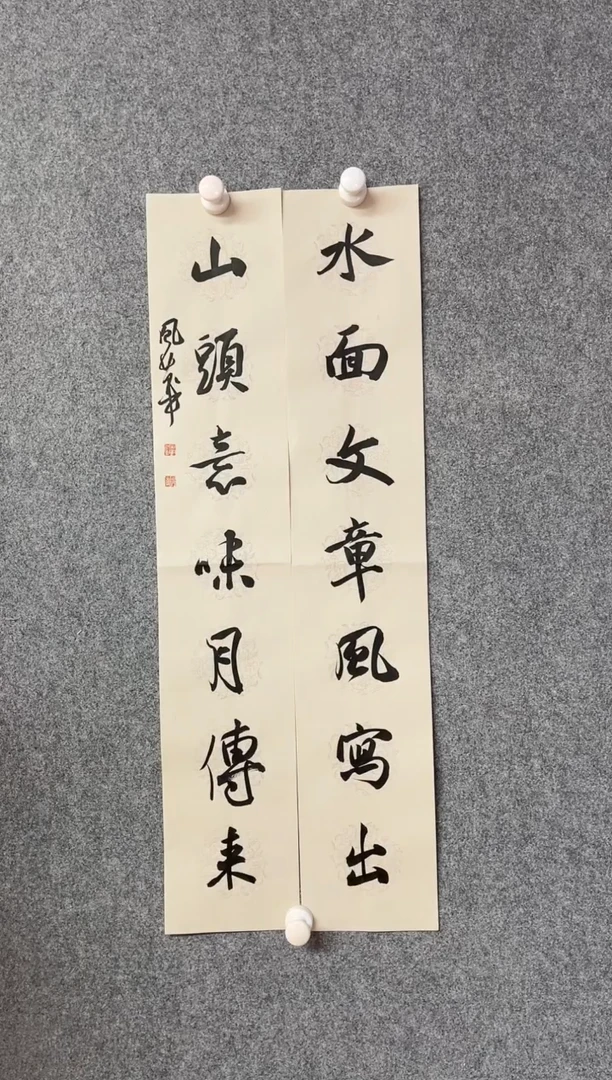 水面文章風寫出
山頭意味月傳来